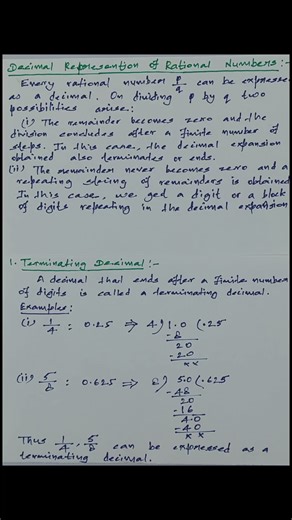 Decimal Representation of Rational Numbers:-
Every rational number p/q can be expresse
as a decimal. On dividing p by q two
possibilities arise:
(i) The remainder becomes zero and the
division concludes after a finite number of
steps. In this case, the decimal expansion
obtained also terminates or ends.
(ii) The remainder never becomes zero and a
repeating string of remainders is obtained
In this case, we get a digit or a block
of digits repeating in the decimal expansion
1. Terminating Decimal:-
A decimal that ends after a finite number
of digits is called a terminating decimal.
Examples:
(i) 1/4 : 0.25 ⇒ 4) 1.0 (.25
-8
20
-20
xx
(ii) 5/8 : 0.625 ⇒ 8) 5.0 (.625
-48
20
-16
40
-40
xx
Thus 1/4, 5/8 can be expressed as a
terminating decimal.